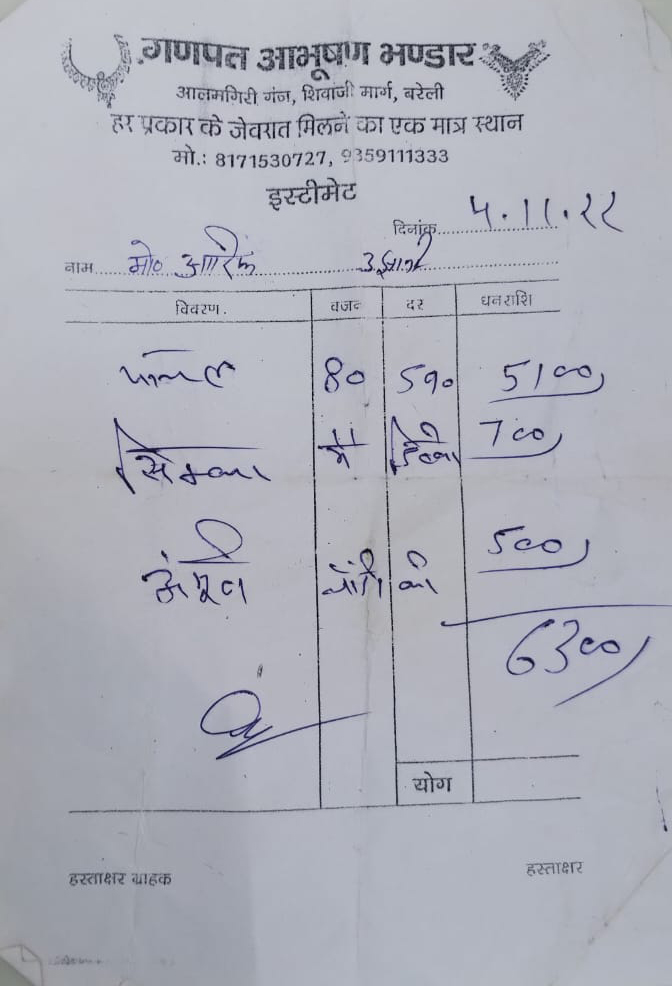 गणपत आभूषण भण्डार
आलमगिरी गंज, शिवाजी मार्ग, बरेली
हर प्रकार के जेवरात मिलने का एक मात्र स्थान
मो.: 8171530727, 9359111333
इस्टीमेट
दिनांक 5.11.22
नाम मो० आरिफ उझानी
विवरण. वजन दर धनराशि
पायल 80 590 5100
700
500
अंगूठी चांदी की
6300
योग
हस्ताक्षर ग्राहक हस्ताक्षर